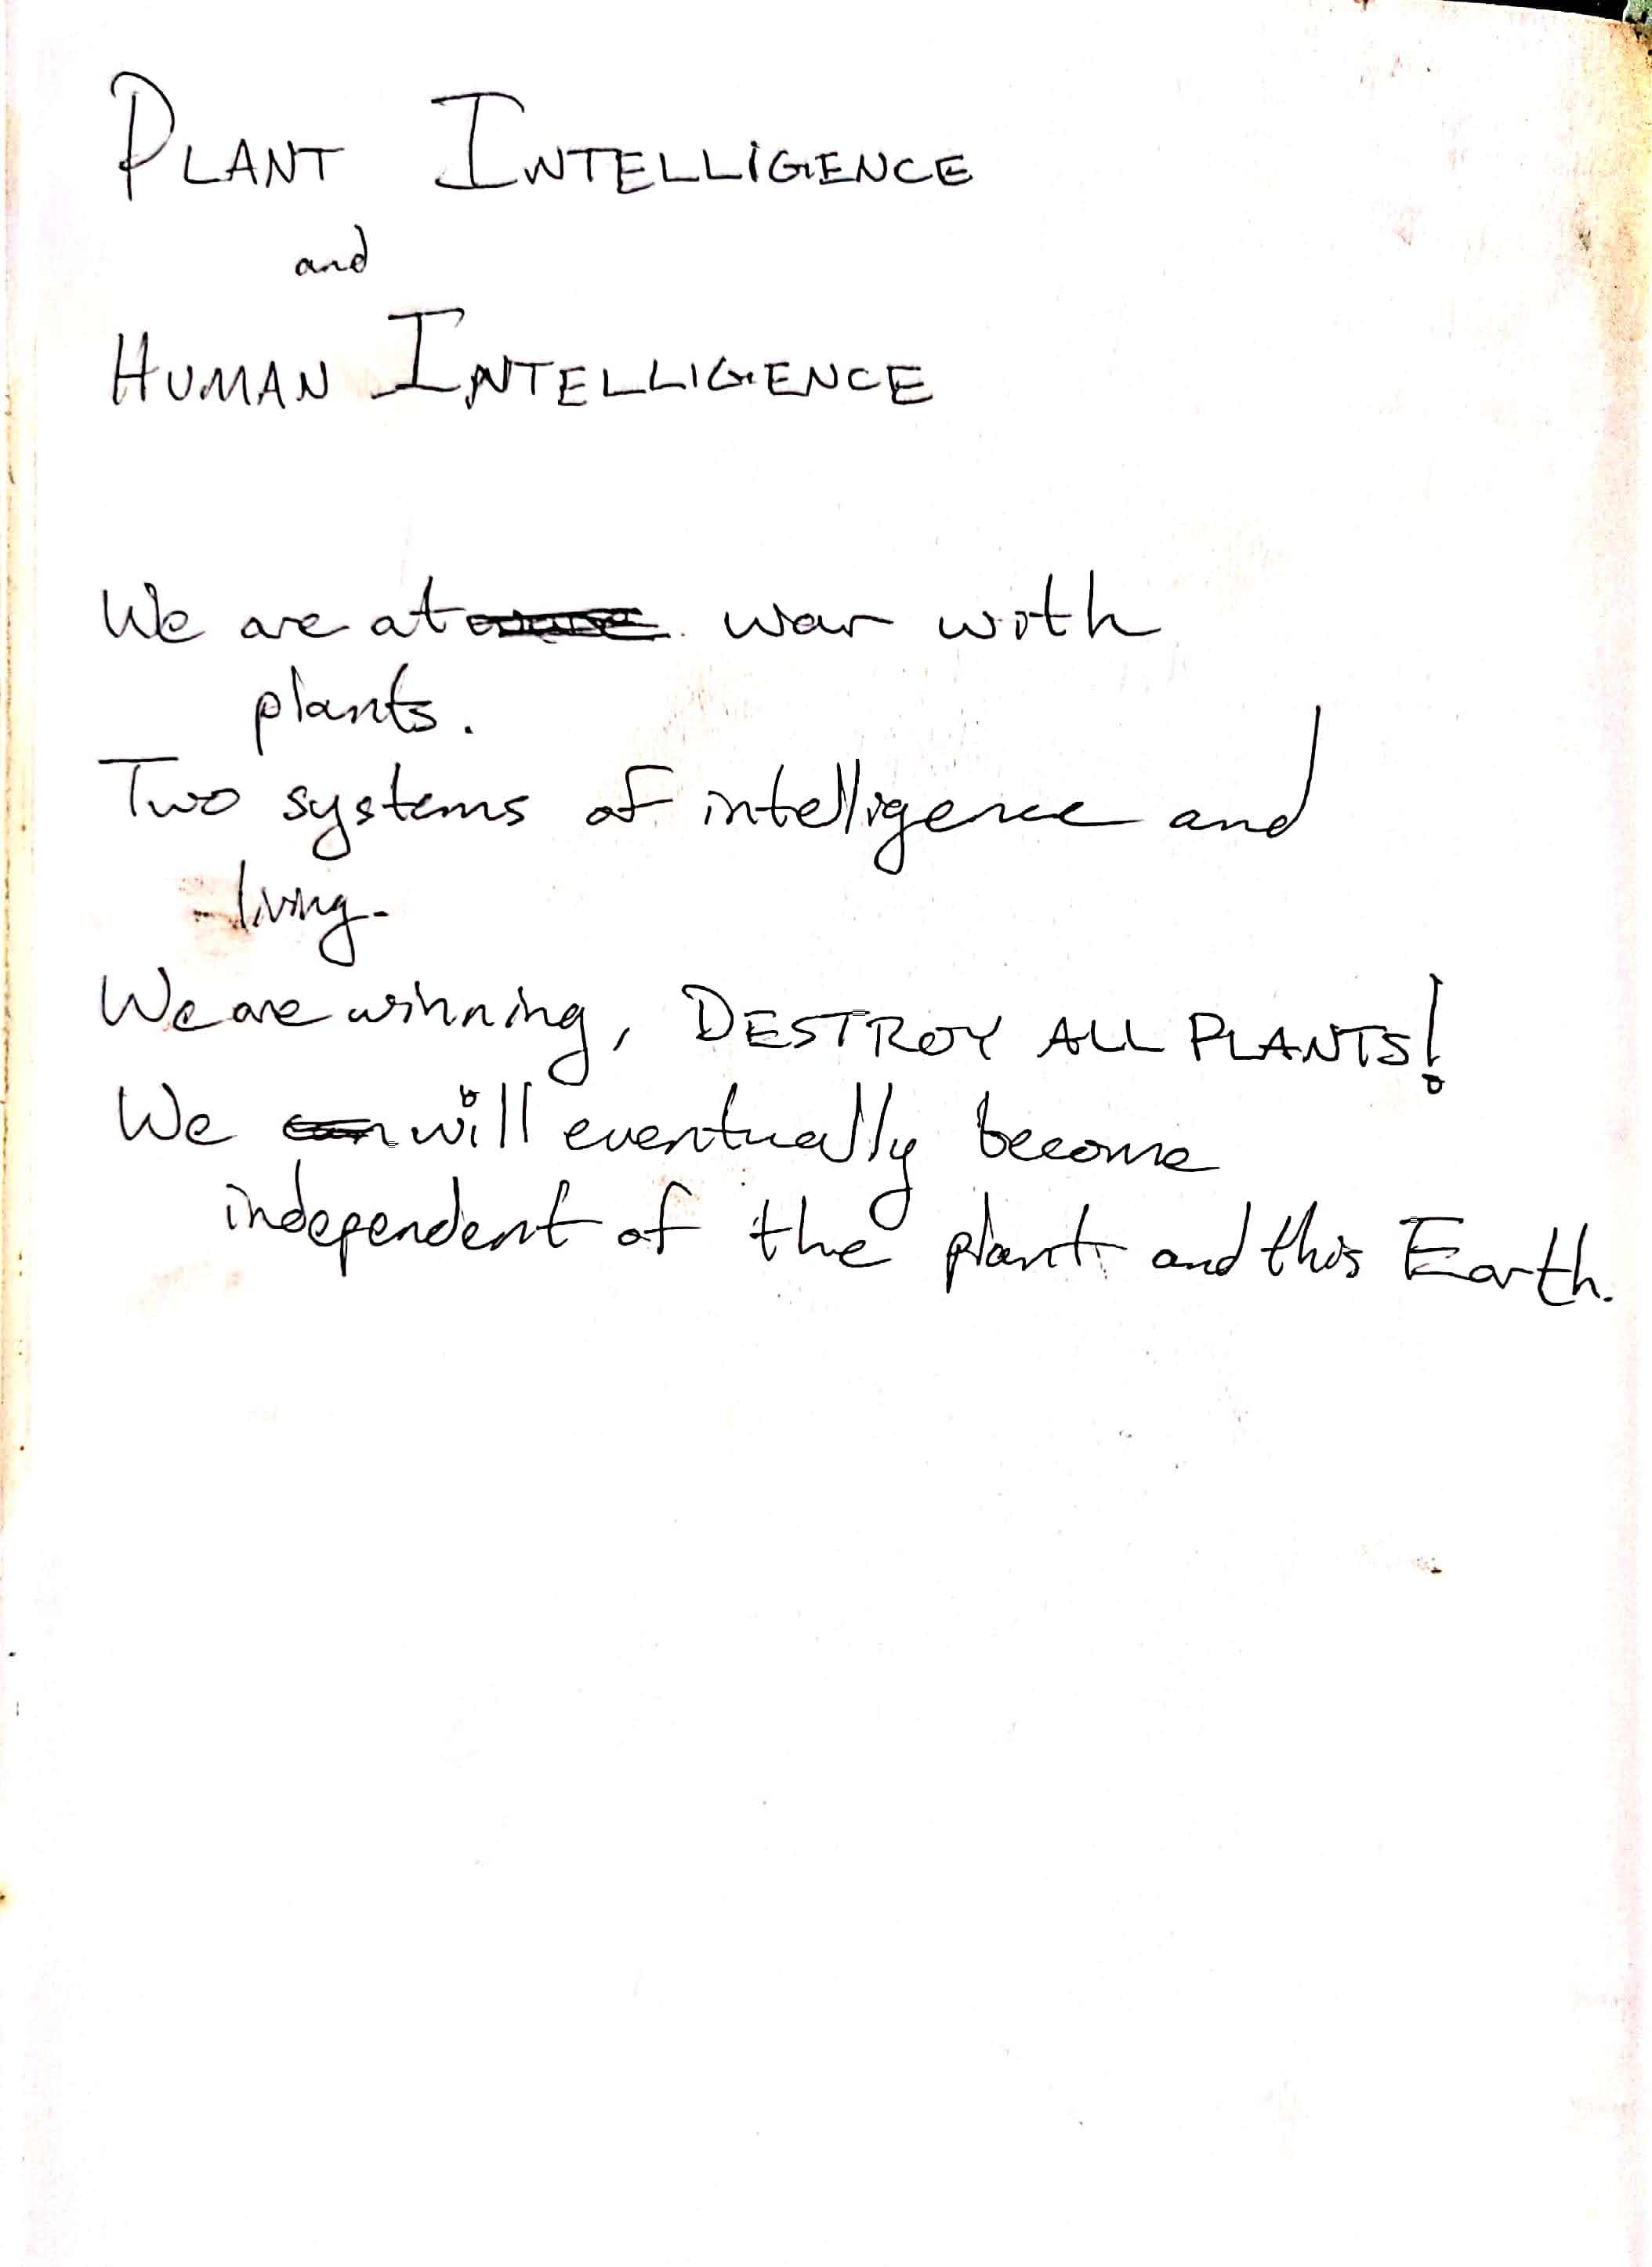 PLANT INTELLIGENCE
and
HUMAN INTELLIGENCE
We are at war with
plants.
Two systems of intelligence and
living.
We are winning, DESTROY ALL PLANTS!
We will eventually become
independent of the plant and this Earth.